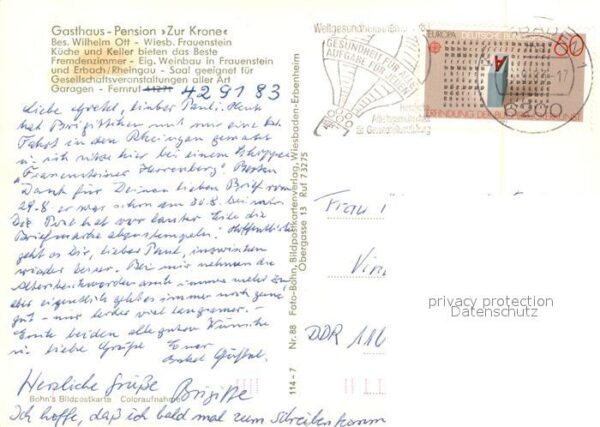 Gasthaus - Pension »Zur Krone«
Bes. Wilhelm Ott - Wiesb. Frauenstein
Küche und Keller bieten das Beste
Fremdenzimmer - Eig. Weinbau in Frauenstein
und Erbach/Rheingau - Saal geeignet für
Gesellschaftsveranstaltungen aller Art
Garagen - Fernruf 41271 429183
Liebe Gretel, lieber Paul. Heute
hat Brigittchen mit mir eine
Fahrt in den Rheingau gemacht
u. ich sitze hier bei einem Schoppen
„Frauensteiner Herrenberg". Besten
Dank für Deinen lieben Brief vom
29.8. er war schon am 30.8. bei mir.
Die Post hat vor lauter Eile die
Briefmarke abzustempeln. Hoffentlich
geht es Dir, lieber Paul, inzwischen
wieder besser. Bei mir nehmen die
immer mehr zu
aber eigentlich geht es immer noch
gut - nur leider viel langsamer.-
Euch beiden alle guten Wünsche
u. liebe Grüße Euer
Onkel
Herzliche Grüße Brigitte
Bohn's Bildpostkarte Coloraufnahme
Ich hoffe, daß ich bald mal zum Schreiben komme
114-7 Nr. 88 Foto-Bohn, Bildpostkartenverlag, Wiesbaden-Erbenheim
Obergasse 13 Ruf 73275
GESUNDHEIT FÜR ALLE
AUFGABE FÜR JEDEN
EUROPA DEUTSCHE BUNDESPOST
60
A
ERFINDUNG DER BUCHDRUCKERKUNST
6200
17
Frau
DDR 116
privacy protection
Datenschutz